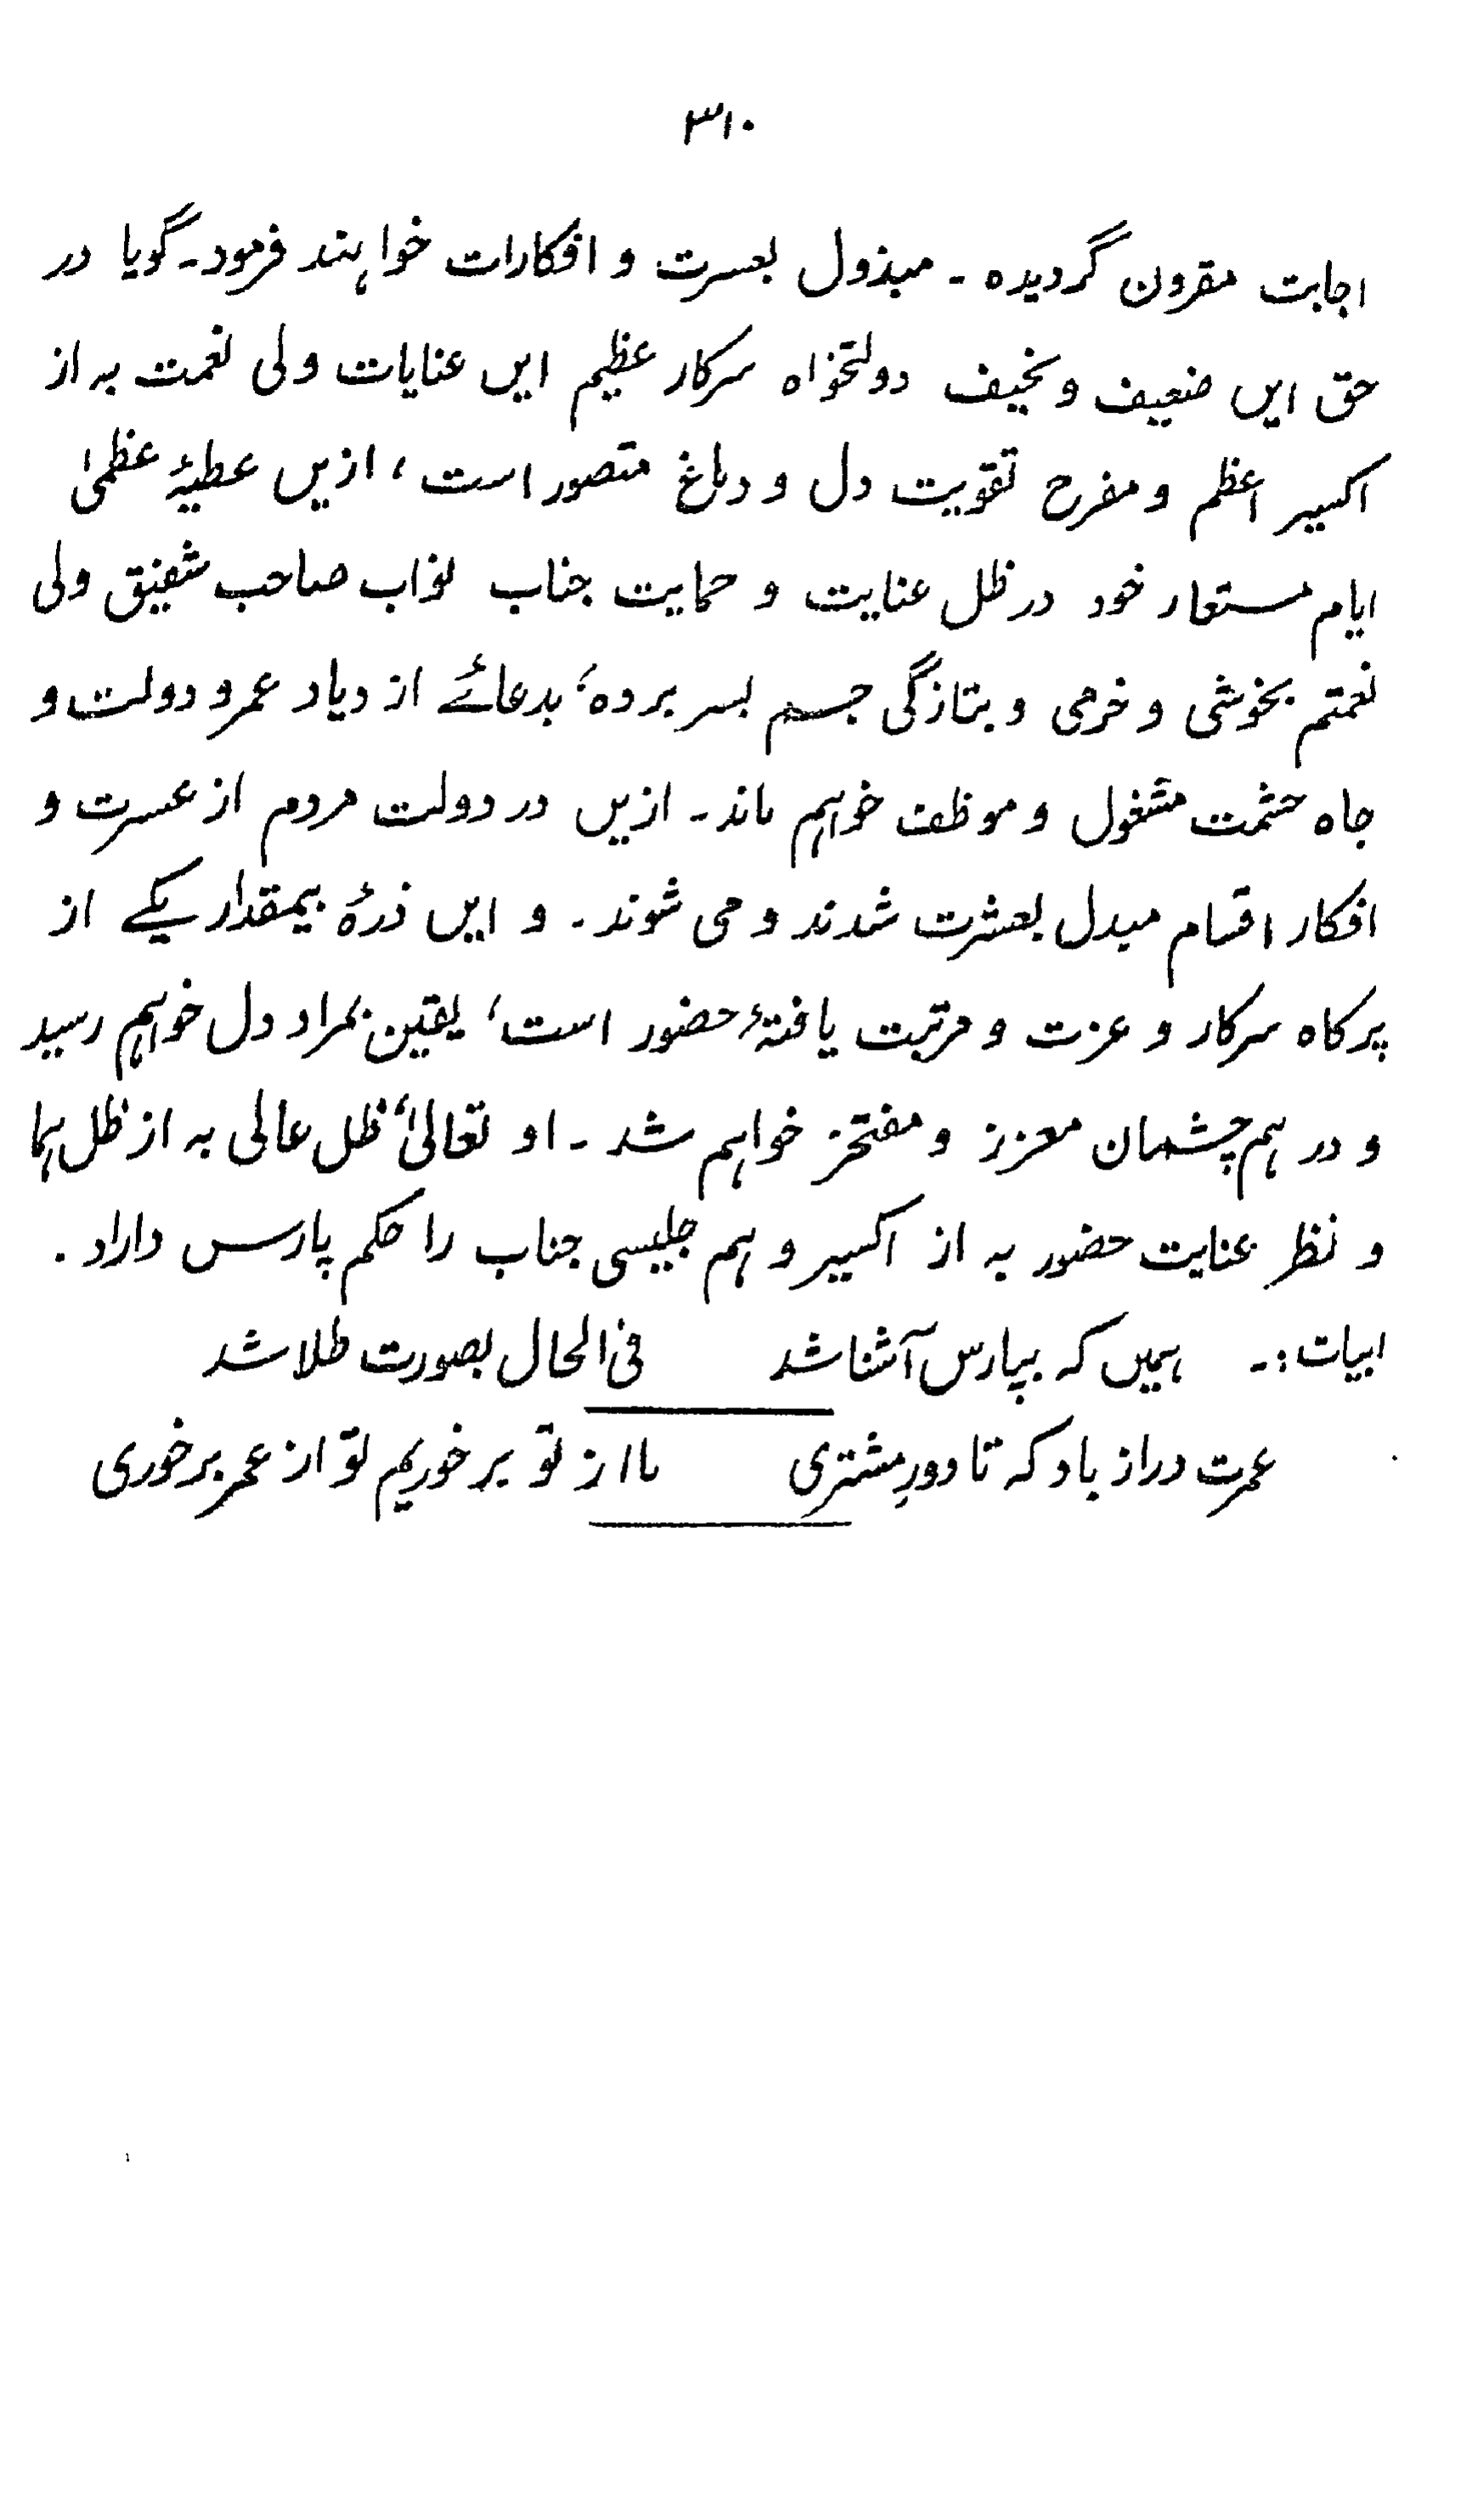 ۳۱۰
اجابت مقرون گردیدہ ۔ مبذول بعسرت و افکارات خواہند فرمود ۔ گویا در
حق ایں ضعیف و نحیف دولتخواہ سرکار عظیم ایں عنایات ولی نعمت بہ از
اکسیر اعظم و مفرح تقویت دل و دماغ متصور است ، ازیں عطیۂ عظمیٰ
ایام مستعار خود در ظل عنایت و حمایت جناب نواب صاحب شفیق ولی
نعمتم بخوشی و خرمی و بتازگی جسم بسر بردہ ، بدعائے ازدیاد عمر و دولت و
جاہ حشمت مشغول و موظف خواہم ماند ۔ ازیں در دولت مردم از عسرت و
افکار اقسام مبدل بعشرت شدند و می شوند ۔ و ایں ذرۂ بیمقدار یکے از
پرکاہ سرکار و عزت و مرتبت یافتۂ حضور است ، یقین بمراد دل خواہم رسید
و در ہم چشمان معزز و مفتخر خواہم شد ۔ او تعالیٰ ظل عالی بہ از ظل ہما
و نظر عنایت حضور بہ از اکسیر و ہم جلیسی جناب را حکم پارس داراد ۔
ابیات :۔ ہمیں کہ بپارس آشنا شد فی الحال بصورت طلا شد
عمرت دراز باد کہ تا دورِ مشتری ما از تو بر خوریم تو از عمر بر خوری